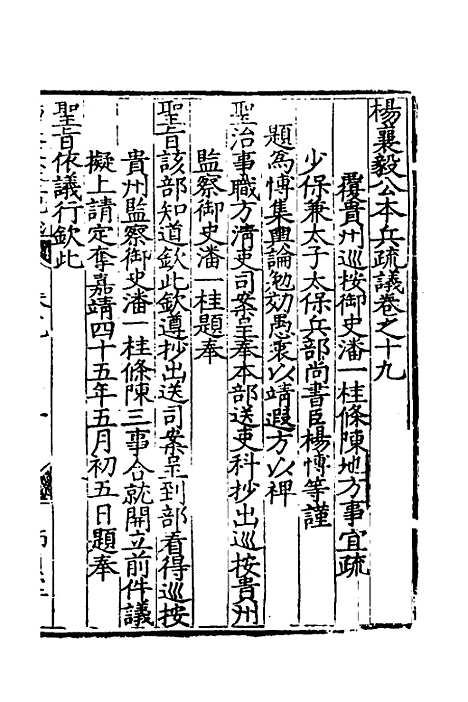 楊襄毅公本兵疏議卷之十九
覆貴州巡按御史潘一桂條陳地方事宜疏
少保兼太子太保兵部尚書臣楊博等謹
題為博集輿論勉効愚衷以靖遐方以裨
聖治事職方清吏司案呈奉本部送吏科抄出巡按貴州
監察御史潘一桂題奉
聖旨該部知道欽此欽遵抄出送司案呈到部看得巡按
貴州監察御史潘一桂條陳三事合就開立前件議
擬上請定奪嘉靖四十五年五月初五日題奉
聖旨依議行欽此